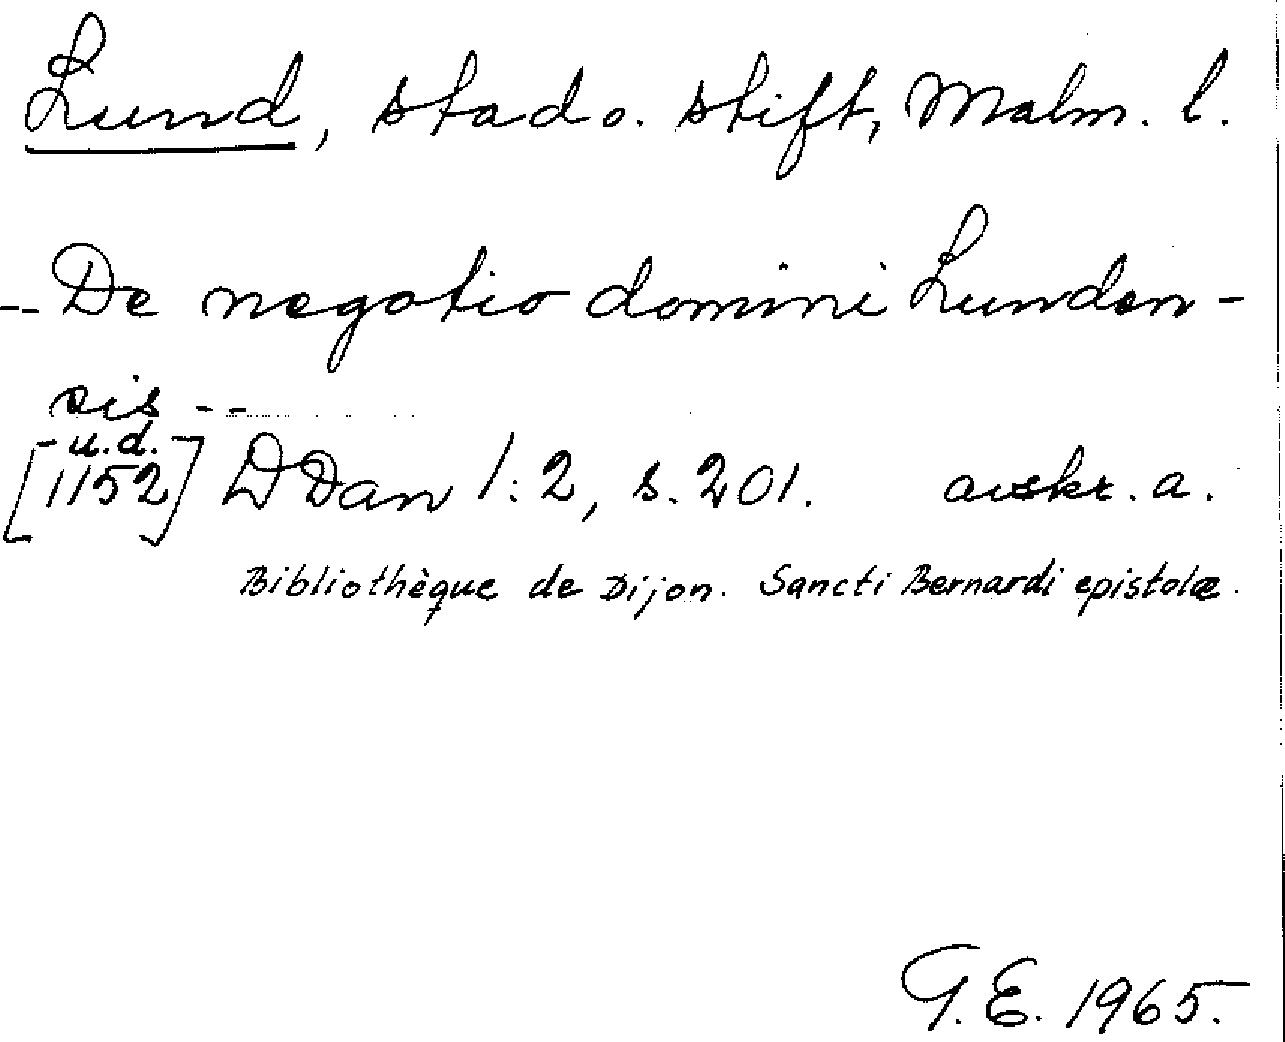 Lund, stad o. stift, Malm. l.
-- De negotio domini Lunden-
sis --
u.d.
[1152] DDan 1:2, s. 201. avskr. a.
Bibliothèque de Dijon. Sancti Bernardi epistolæ.
G.E. 1965.